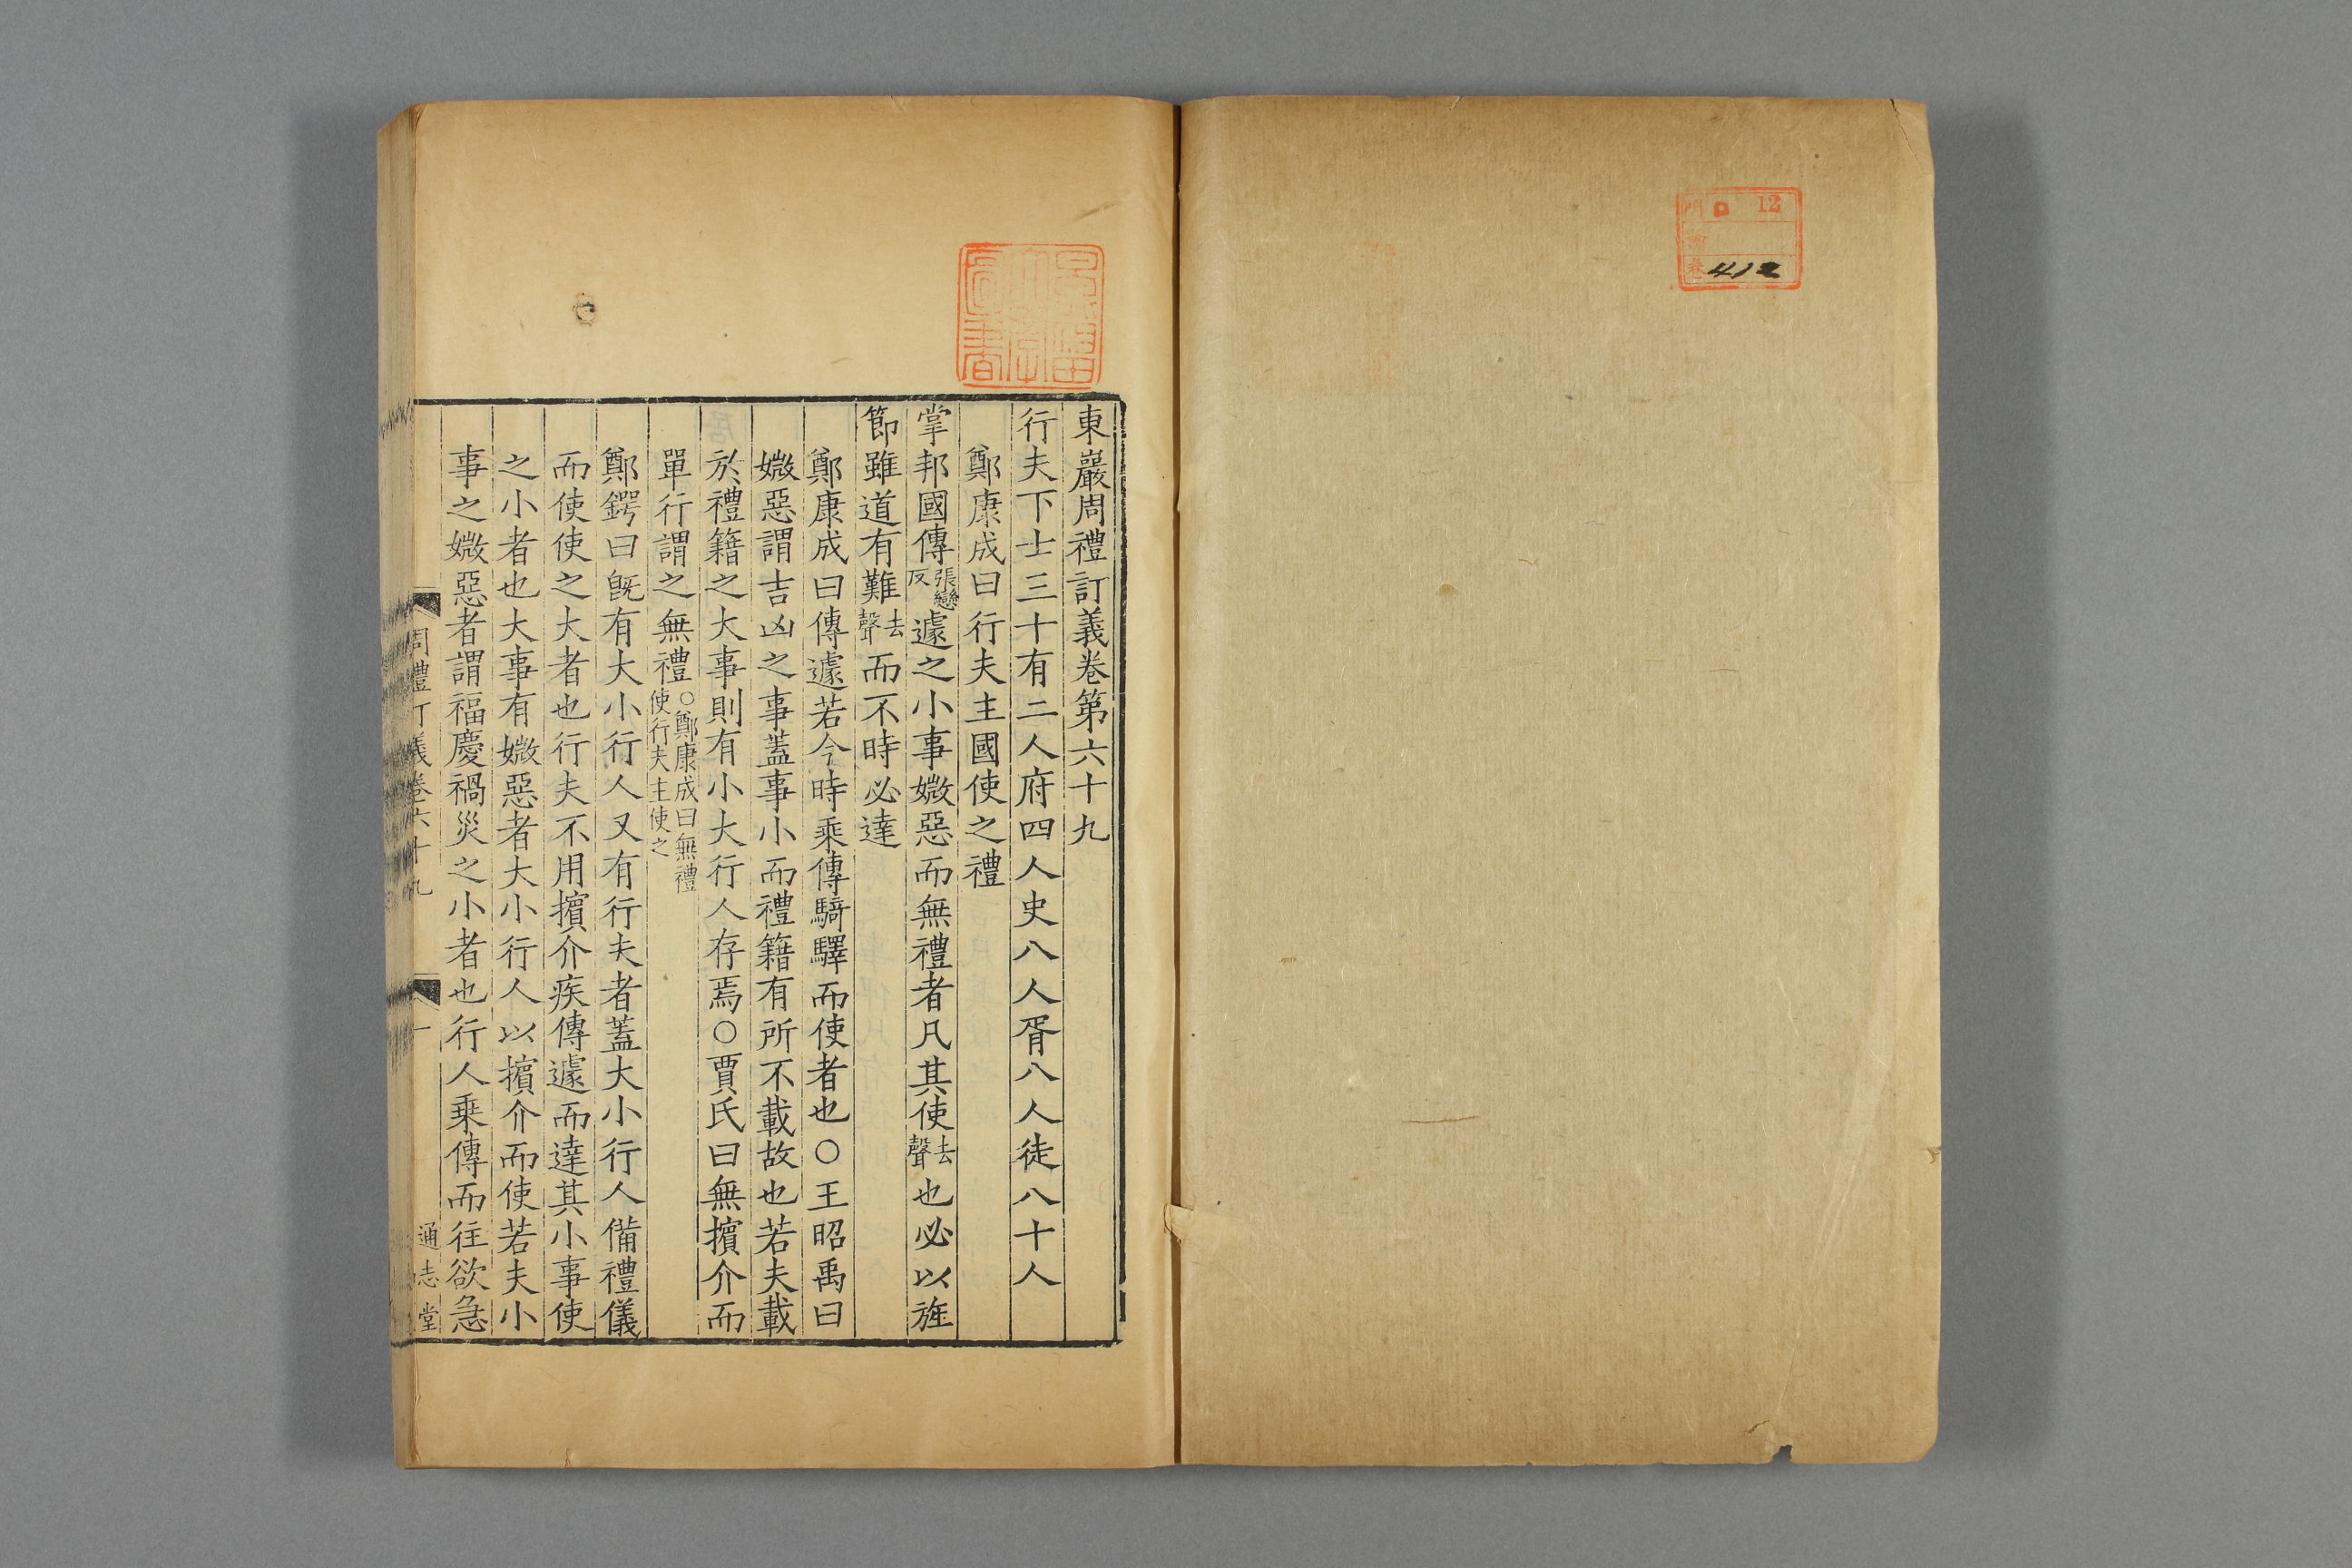 門 ロ 12
卷 412
東巖周禮訂義卷第六十九
行夫下士三十有二人府四人史八人胥八人徒八十人
鄭康成曰行夫主國使之禮
掌邦國傳張戀反遽之小事媺惡而無禮者凡其使去聲也必以旌
節雖道有難去聲而不時必達
鄭康成曰傳遽若今時乘傳騎驛而使者也○王昭禹曰
媺惡謂吉凶之事蓋事小而禮籍有所不載故也若夫載
於禮籍之大事則有小大行人存焉○賈氏曰無擯介而
單行謂之無禮○鄭康成曰無禮使行夫主使之
鄭鍔曰既有大小行人又有行夫者蓋大小行人備禮儀
而使使之大者也行夫不用擯介疾傳遽而達其小事使
之小者也大事有媺惡者大小行人以擯介而使若夫小
事之媺惡者謂福慶禍災之小者也行人乘傳而往欲急
周禮訂義卷六十九 一 通志堂